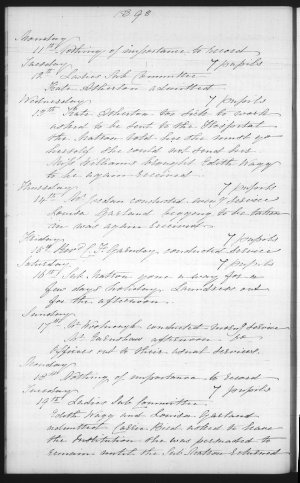 1898
Monday
11th Nothing of importance to record
Tuesday 7 pupils
12th Ladies Sub Committee
Kate Atherton admitted
Wednesday 7 pupils
13th Kate Atherton too sick to work
asked to be sent to the Hospital
the Matron told her she must go
herself she could not send her
Miss Williams brought Edith Wagg
to be again received
Thursday 7 pupils
14th Mr conducted eveng service
Louisa Garland begging to be taken
in was again received
Friday 7 pupils
15th conducted service
Saturday 7 pupils
16th Sub Matron gone away for a
few days holiday. Laundress out
for the afternoon.
Sunday
17th Mr conducted morng service
Mr afternoon.
Officers out to their usual services.
Monday
18th Nothing of importance to record
Tuesday 7 pupils
19th Ladies Sub Committee.
Edith Wagg and Louisa Garland
admitted. Carrie asked to leave
the Institution she was persuaded to
remain until the Sub Matron returned